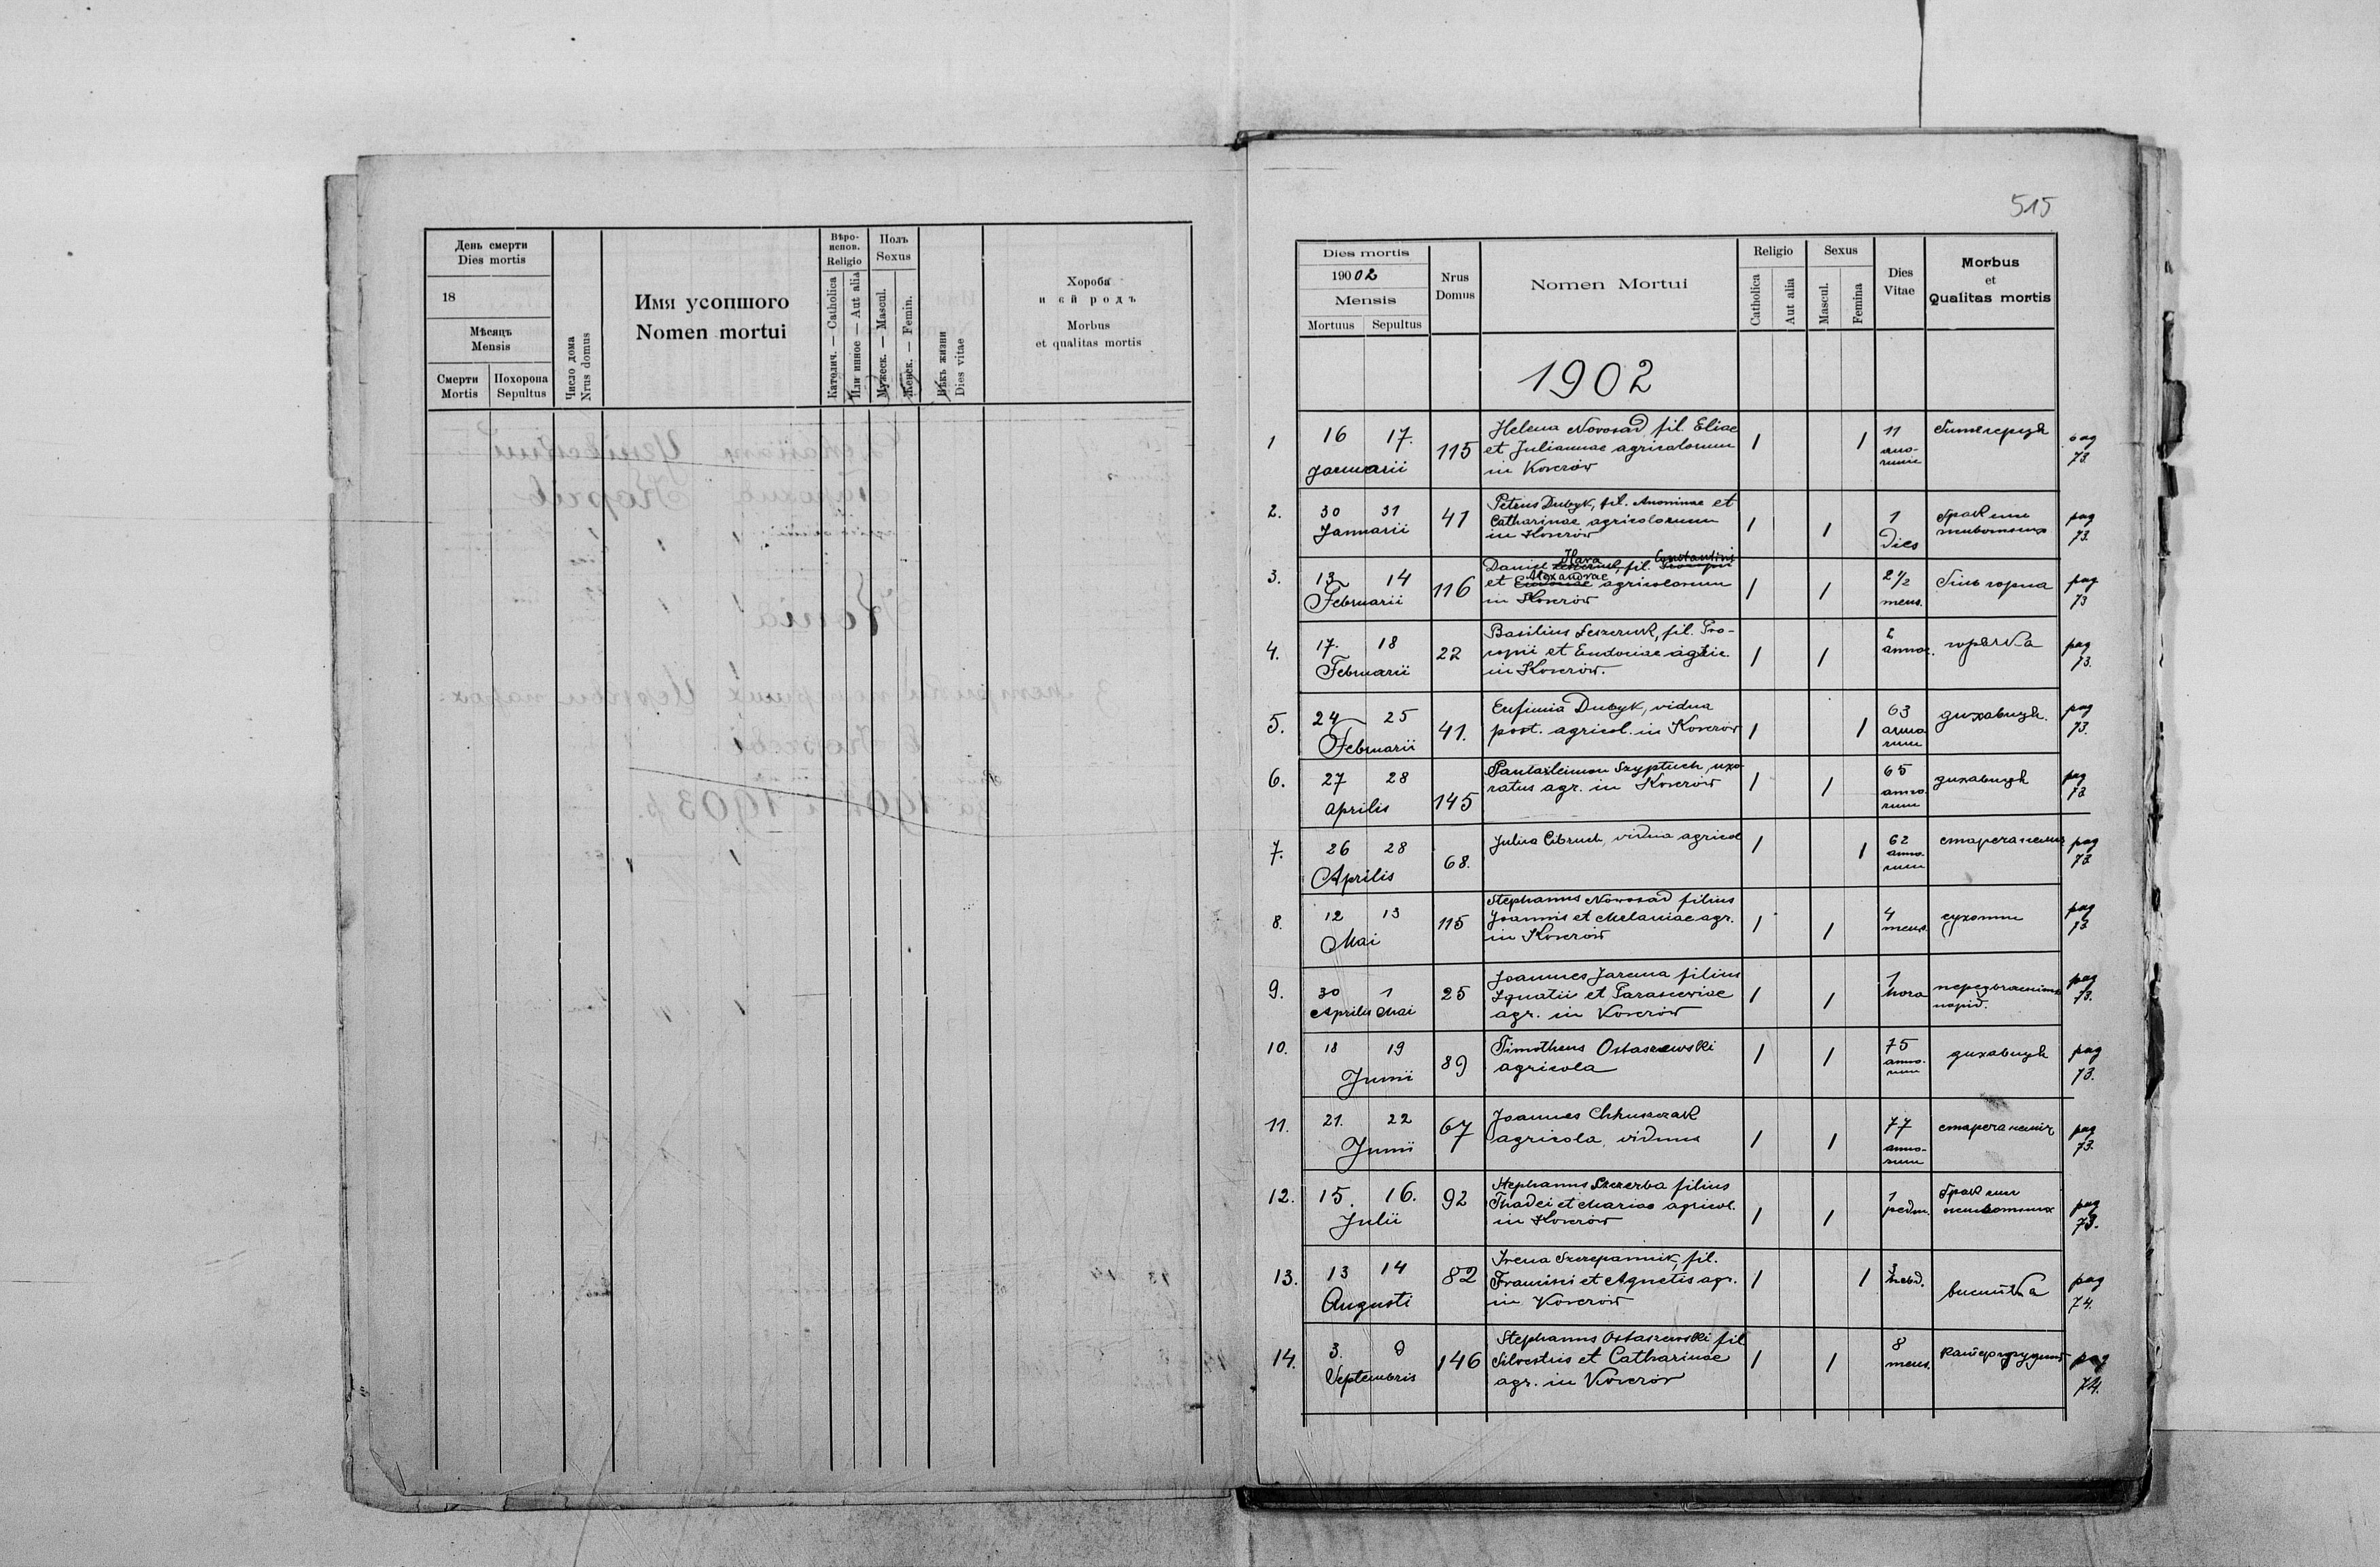 День смерти
Dies mortis
18
Мѣсяцъ
Mensis
Смерти
Mortis
Похорона
Sepultus
Число дома
Nrus domus
Имя усопшого
Nomen mortui
Вѣро-
испов.
Religio
Католич. — Catholica
Или инное — Aut alia
Полъ
Sexus
Мужеск. — Mascul.
Женск. — Femin.
Вѣкъ жизни
Dies vitae
Хороба
и єй родъ
Morbus
et qualitas mortis
515
Dies mortis
1902
Mensis
Mortuus Sepultus
Nrus
Domus
Nomen Mortui
Religio
Catholica
Aut alia
Sexus
Mascul.
Femina
Dies
Vitae
Morbus
et
Qualitas mortis
1902
1
16 17.
Januarii
115
Helena Novosad fil. Eliae
et Juliannae agricolorum
in Korczów
1 1
11
anno-
rum
pag
73.
2.
30 31
Januarii
41
Petrus Dubyk, fil. et
Catharinae agricolorum
in Korczów
1 1
1
Dies
брак сил
животних
pag
73.
3.
13 14
Februarii
116
Hava Constantini
Daniel fil.
Alexandrae
et agricolorum
in Korczów
1 1
2 1/2
mens.
біль горла
pag
73
4.
17. 18
Februarii
22
Basilius Leszczuk, fil. Pro-
copii et Eudociae agric.
in Korczów.
1 1
2
annor.
горячка
pag
73.
5.
24 25
Februarii
41.
Eufimia Dubyk, vidua
post. agricol. in Korczów
1 1
63
anno
rum
дихавиця.
pag
73.
6.
27 28
aprilis
145
Pantaleimon Szyptuch, uxo-
ratus agr. in Korczów
1 1
65
anno
rum
дихавиця
pag
73
7.
26 28
Aprilis
68.
Julia Cibruch, vidua agricol
1 1
62
anno-
rum
стареча неміч
pag
73
8.
12 13
Mai
115
Stephanus Nowosad filius
Joannis et Melaniae agr.
in Korczów
1 1
4
mens.
сухоти
pag
73
9.
30 1
Aprilis Mai
25
Joannes Jarema filius
Ignatii et Parasceviae
agr. in Korczów
1 1
1
hora
передвчасний
порід.
pag
73.
10.
18 19
Junii
89
Timotheus Ostaszewski
agricola
1 1
75
anno-
rum
дихавиця
pag
73.
11.
21. 22
Junii
67
Joannes
agricola, viduus
1 1
77
anno-
rum
стареча неміч
pag
73.
12.
15. 16.
Julii
92
Stephanus Szczerba filius
Thadei et Mariae agricol.
in Korczów
1 1
1
брак сил
животних
pag
73.
13.
13 14
Augusti
82
Irena Szczepannik, fil.
Francisci et Agnetis agr.
in Korczów
1 1
hebd.
висипка
pag
74.
14.
3. 9
Septembris
146
Stephanus Ostaszewski fil
Silvestris et Catharinae
agr. in Korczów
1 1
8
mens.
pag
74.